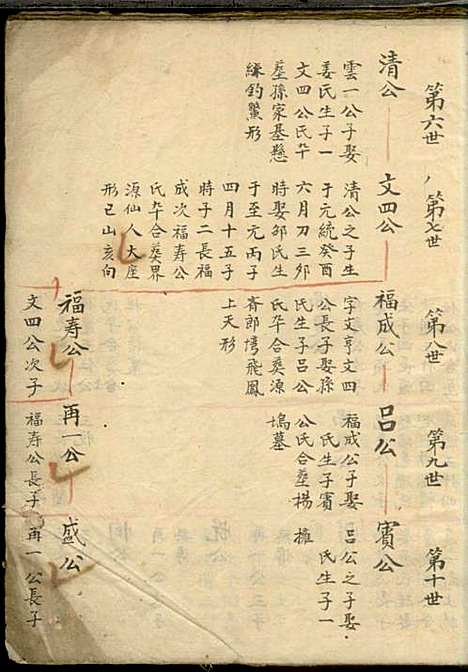 第六世
清公
雲一公子娶
姜氏生子一
文四公氏卒
塟孫家基懸
綵釣鱉形
第七世
文四公
清公之子生
于元統癸酉
六月刀三卯
時娶邹氏生
于至元丙子
四月十五子
時子二長福
成次福寿公
氏卒合葵界
源仙人大座
形已山亥向
第八世
福成公
字文亨文四
公長子娶孫
氏生子吕公
氏卒合葵源
齊郎塆飛鳳
上天形
第九世
吕公
福成公子娶
氏生子賓
公氏合塟楊
塢墓
第十世
賓公
吕公之子娶
氏生子一
權
福寿公
文四公次子
再一公
福寿公長子
盛公
再一公長子